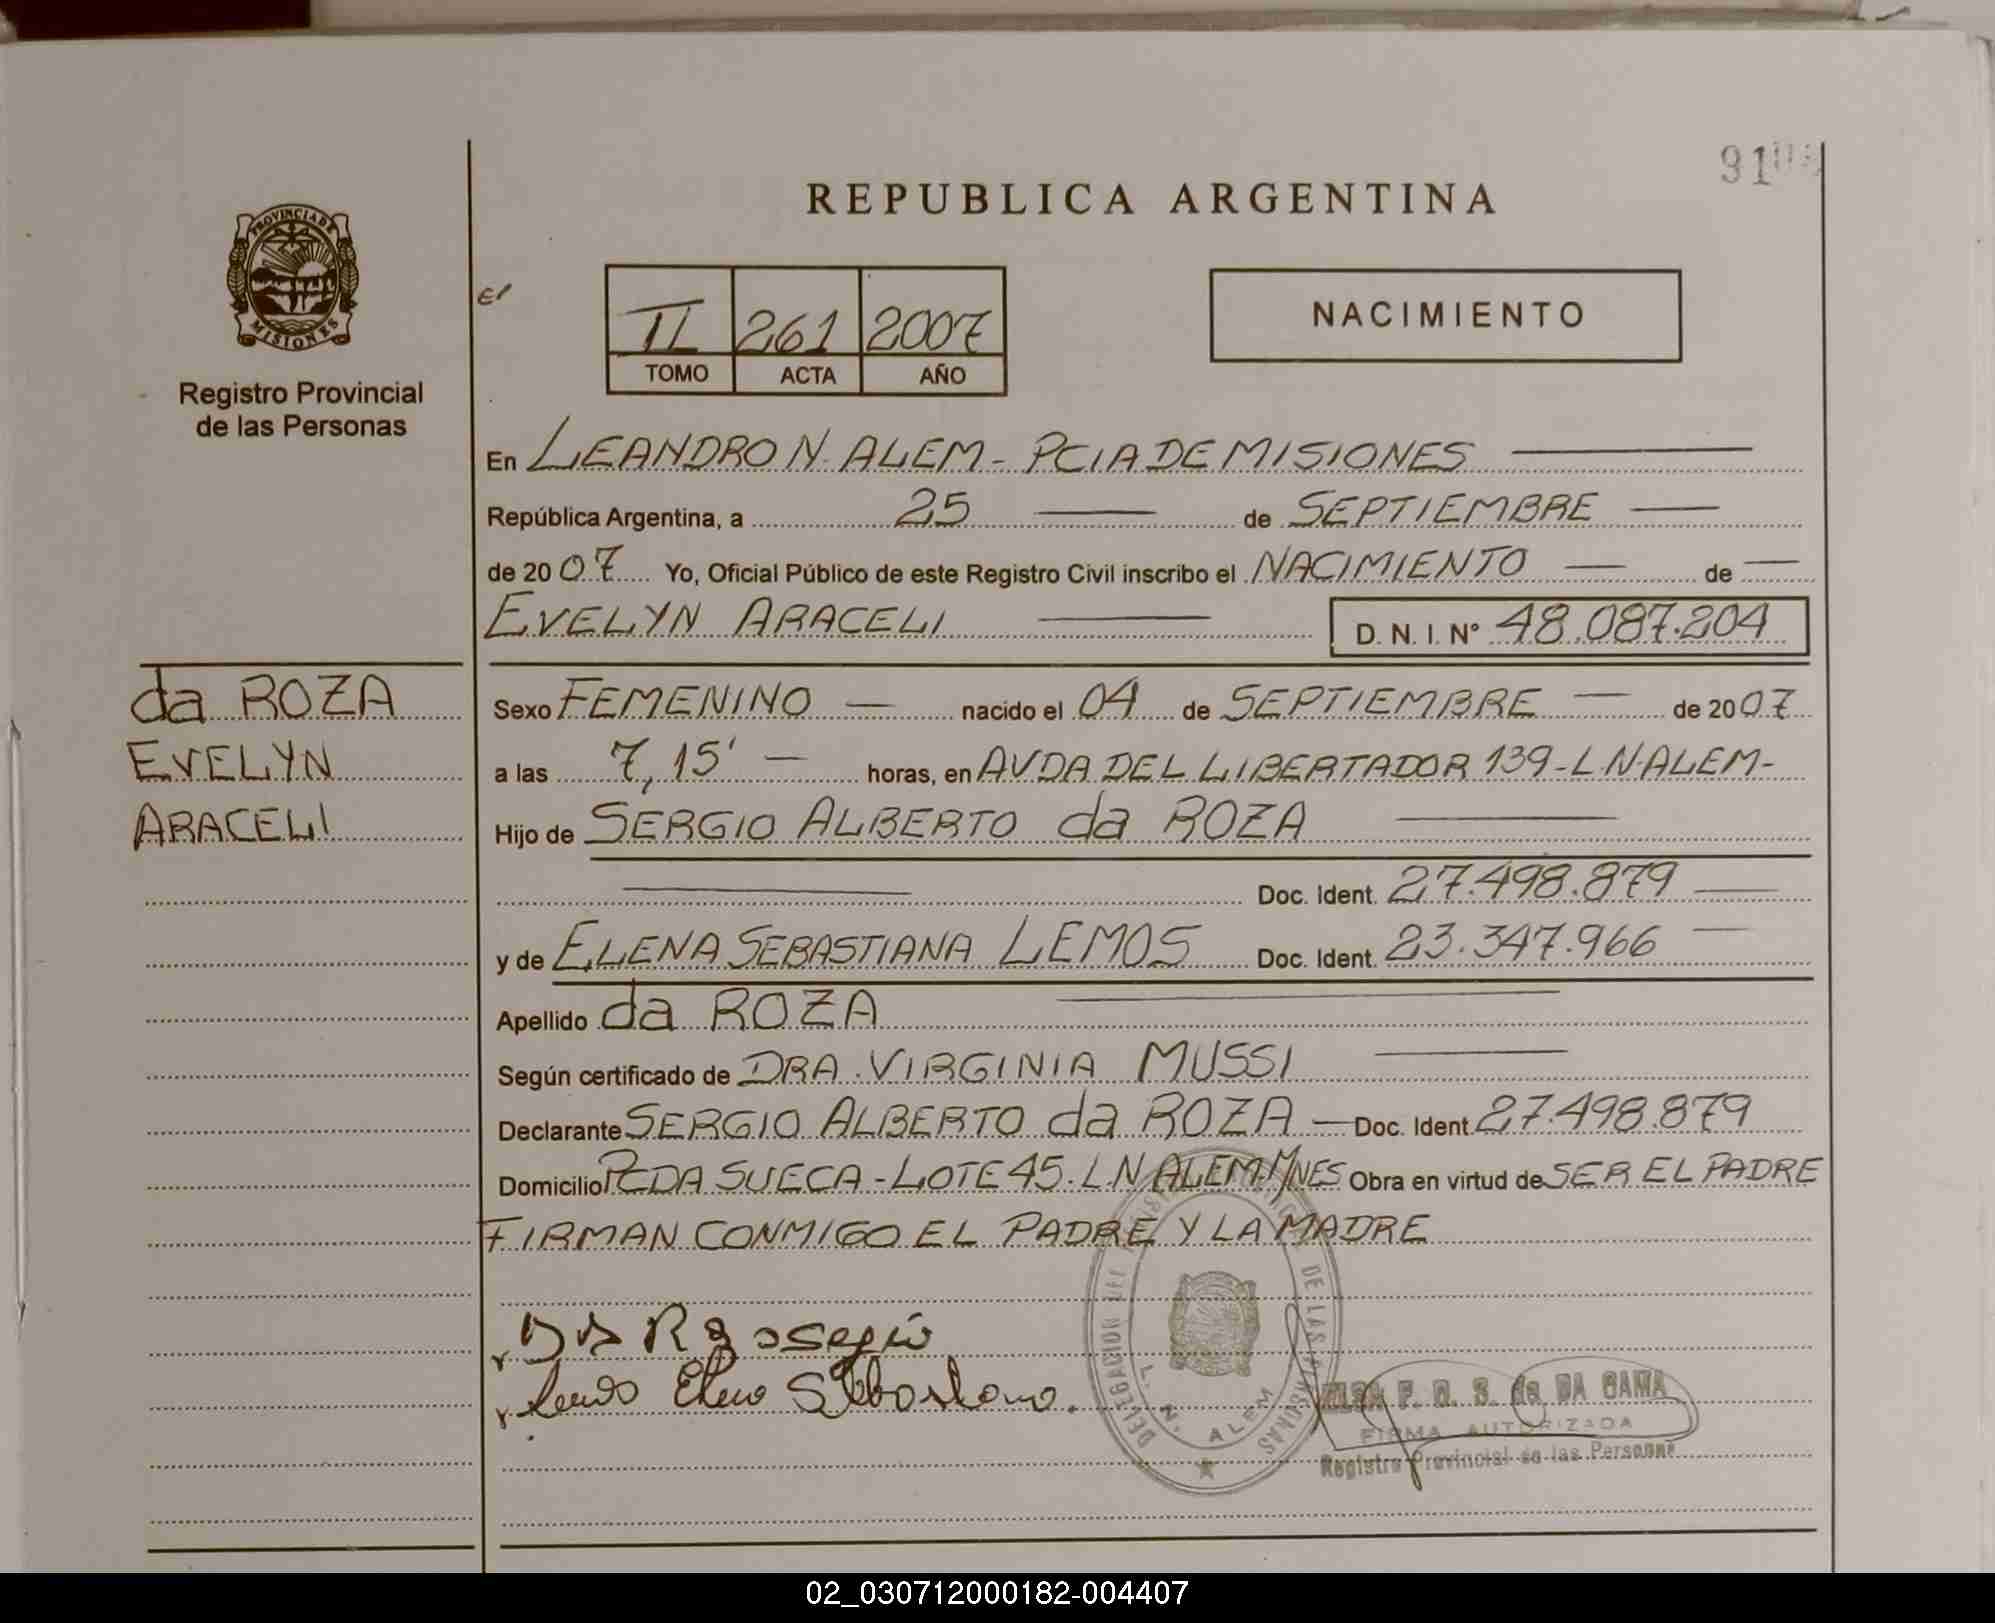 PROVINCIA DE
MISIONES
Registro Provincial
de las Personas
REPUBLICA ARGENTINA
91
II 261 2007
TOMO ACTA AÑO
NACIMIENTO
En LEANDRO N. ALEM - PCIA DE MISIONES
República Argentina, a 25 de SEPTIEMBRE
de 20 07 Yo, Oficial Público de este Registro Civil inscribo el NACIMIENTO de
EVELYN ARACELI D. N. I. Nº 48.087.204
da ROZA
EVELYN
ARACELI
Sexo FEMENINO nacido el 04 de SEPTIEMBRE de 20 07
a las 7,15' horas, en AVDA DEL LIBERTADOR 139 - L N. ALEM -
Hijo de SERGIO ALBERTO da ROZA
Doc. Ident. 27.498.879
y de ELENA SEBASTIANA LEMOS Doc. Ident. 23.347.966
Apellido da ROZA
Según certificado de DRA. VIRGINIA MUSSI
Declarante SERGIO ALBERTO da ROZA Doc. Ident 27.498.879
Domicilio PCDA SUECA - LOTE 45. L N ALEM MNES Obra en virtud de SER EL PADRE
FIRMAN CONMIGO EL PADRE Y LA MADRE
DELEGACION DEL DE LAS PERSONAS
L. N. ALEM
Lemos Elena Sebastiana.
de DA GAMA
FIRMA AUTORIZADA
Registro Provincial de las Personas
02_030712000182-004407